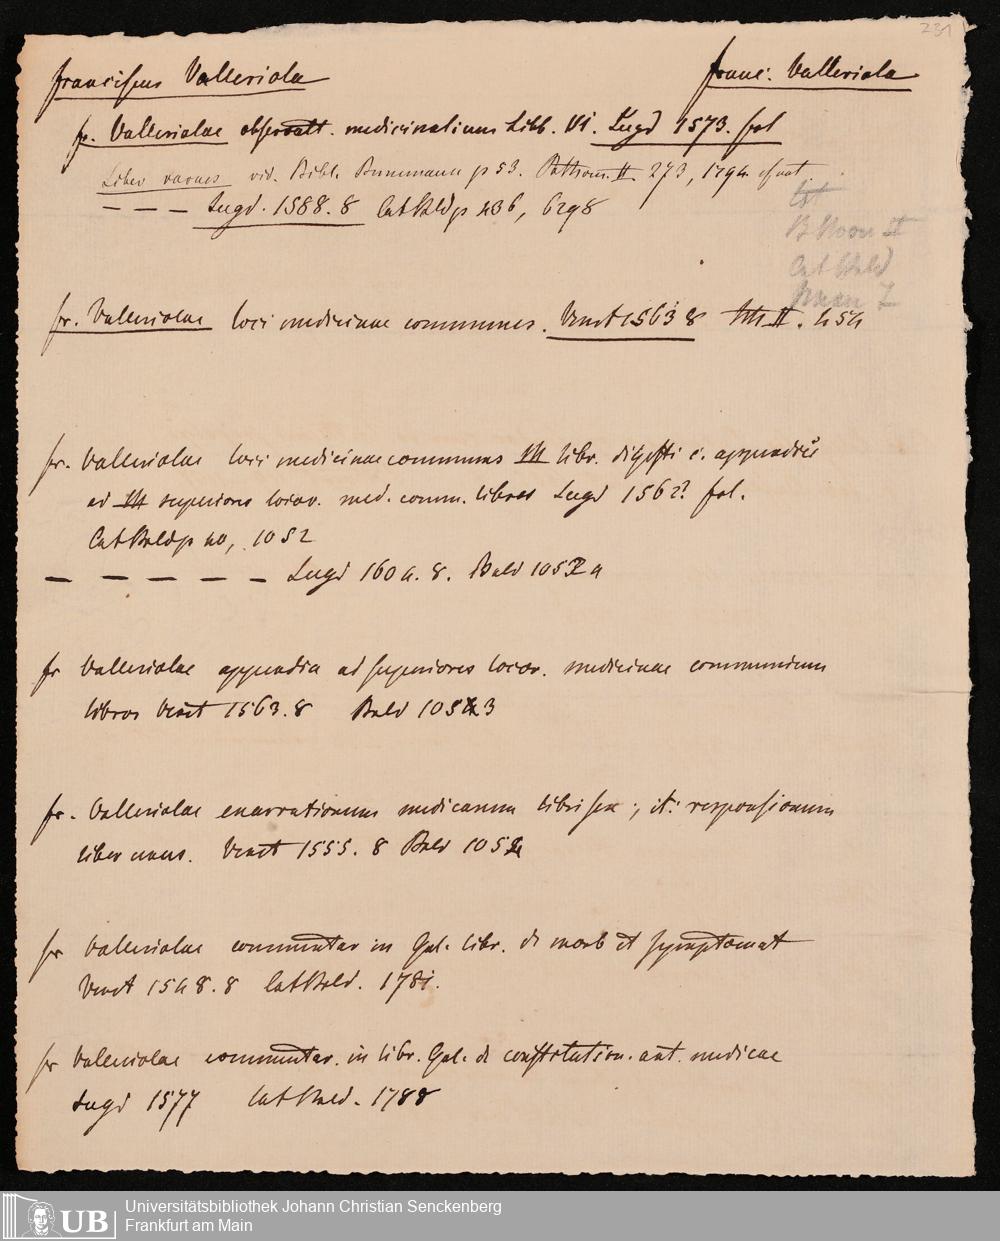 231
Franciscus Valleriola Franc. Valleriola
fr. Valleriolae observatt. medicinalium Libb. VI. Lugd 1573. fol
Liber rarus vid. Bibl. p 53. II. 273, 1794
– – – Lugd. 1588. 8 Cat Bald p 436, 6298
Cat Bald
fr. Valleriolae loci medicinae communes. Venet 1563 8 II. 454
fr. Valleriolae loci medicinae communes III libr. digesti c. appendice
ad III superiores locor. med. comm. libros Lugd 1562? fol.
Cat Bald p 40, 1052
– – – – – Lugd 1604. 8. Bald 1052 a
fr Valleriolae appendix ad superiores locor. medicinae communium
libros Venet 1563. 8 Bald 1053
fr. Valleriolae enarrationum medicarum libri sex; it: responsionum
liber unus. Venet 1555. 8 Bald
fr Valleriolae commentar in Gal. libr. de morb et symptomat
Venet 1548. 8 Cat Bald. 1781.
fr Valleriolae commentar. in libr. Gal. de constitution. art. medicae
Lugd 1577 Cat Bald. 1788
UB
Universitätsbibliothek Johann Christian Senckenberg
Frankfurt am Main